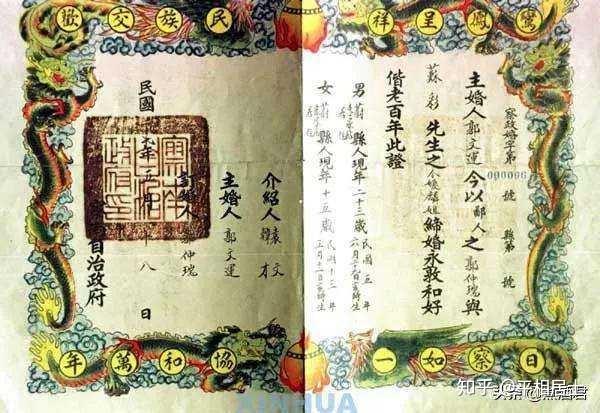 鸞鳳呈祥
民族交歡
察政婚字第 號 縣第 號
000096
主婚人郭文運今以鄙人之郭仲瑰與
蘇彩先生之令媛 姐締婚永敦和好
偕老百年此證
男蔚縣人現年二十三歲民國五年
六月二十 日 時生
女蔚縣人現年十五歲民國十三年
五月十一日 時生
介紹人 袁文
韓才
主婚人 郭文運
訂婚人 郭仲瑰
自治政府
民國 年 月 十八日
日察如一
協和萬年
XINHUA
知乎 @平相居士